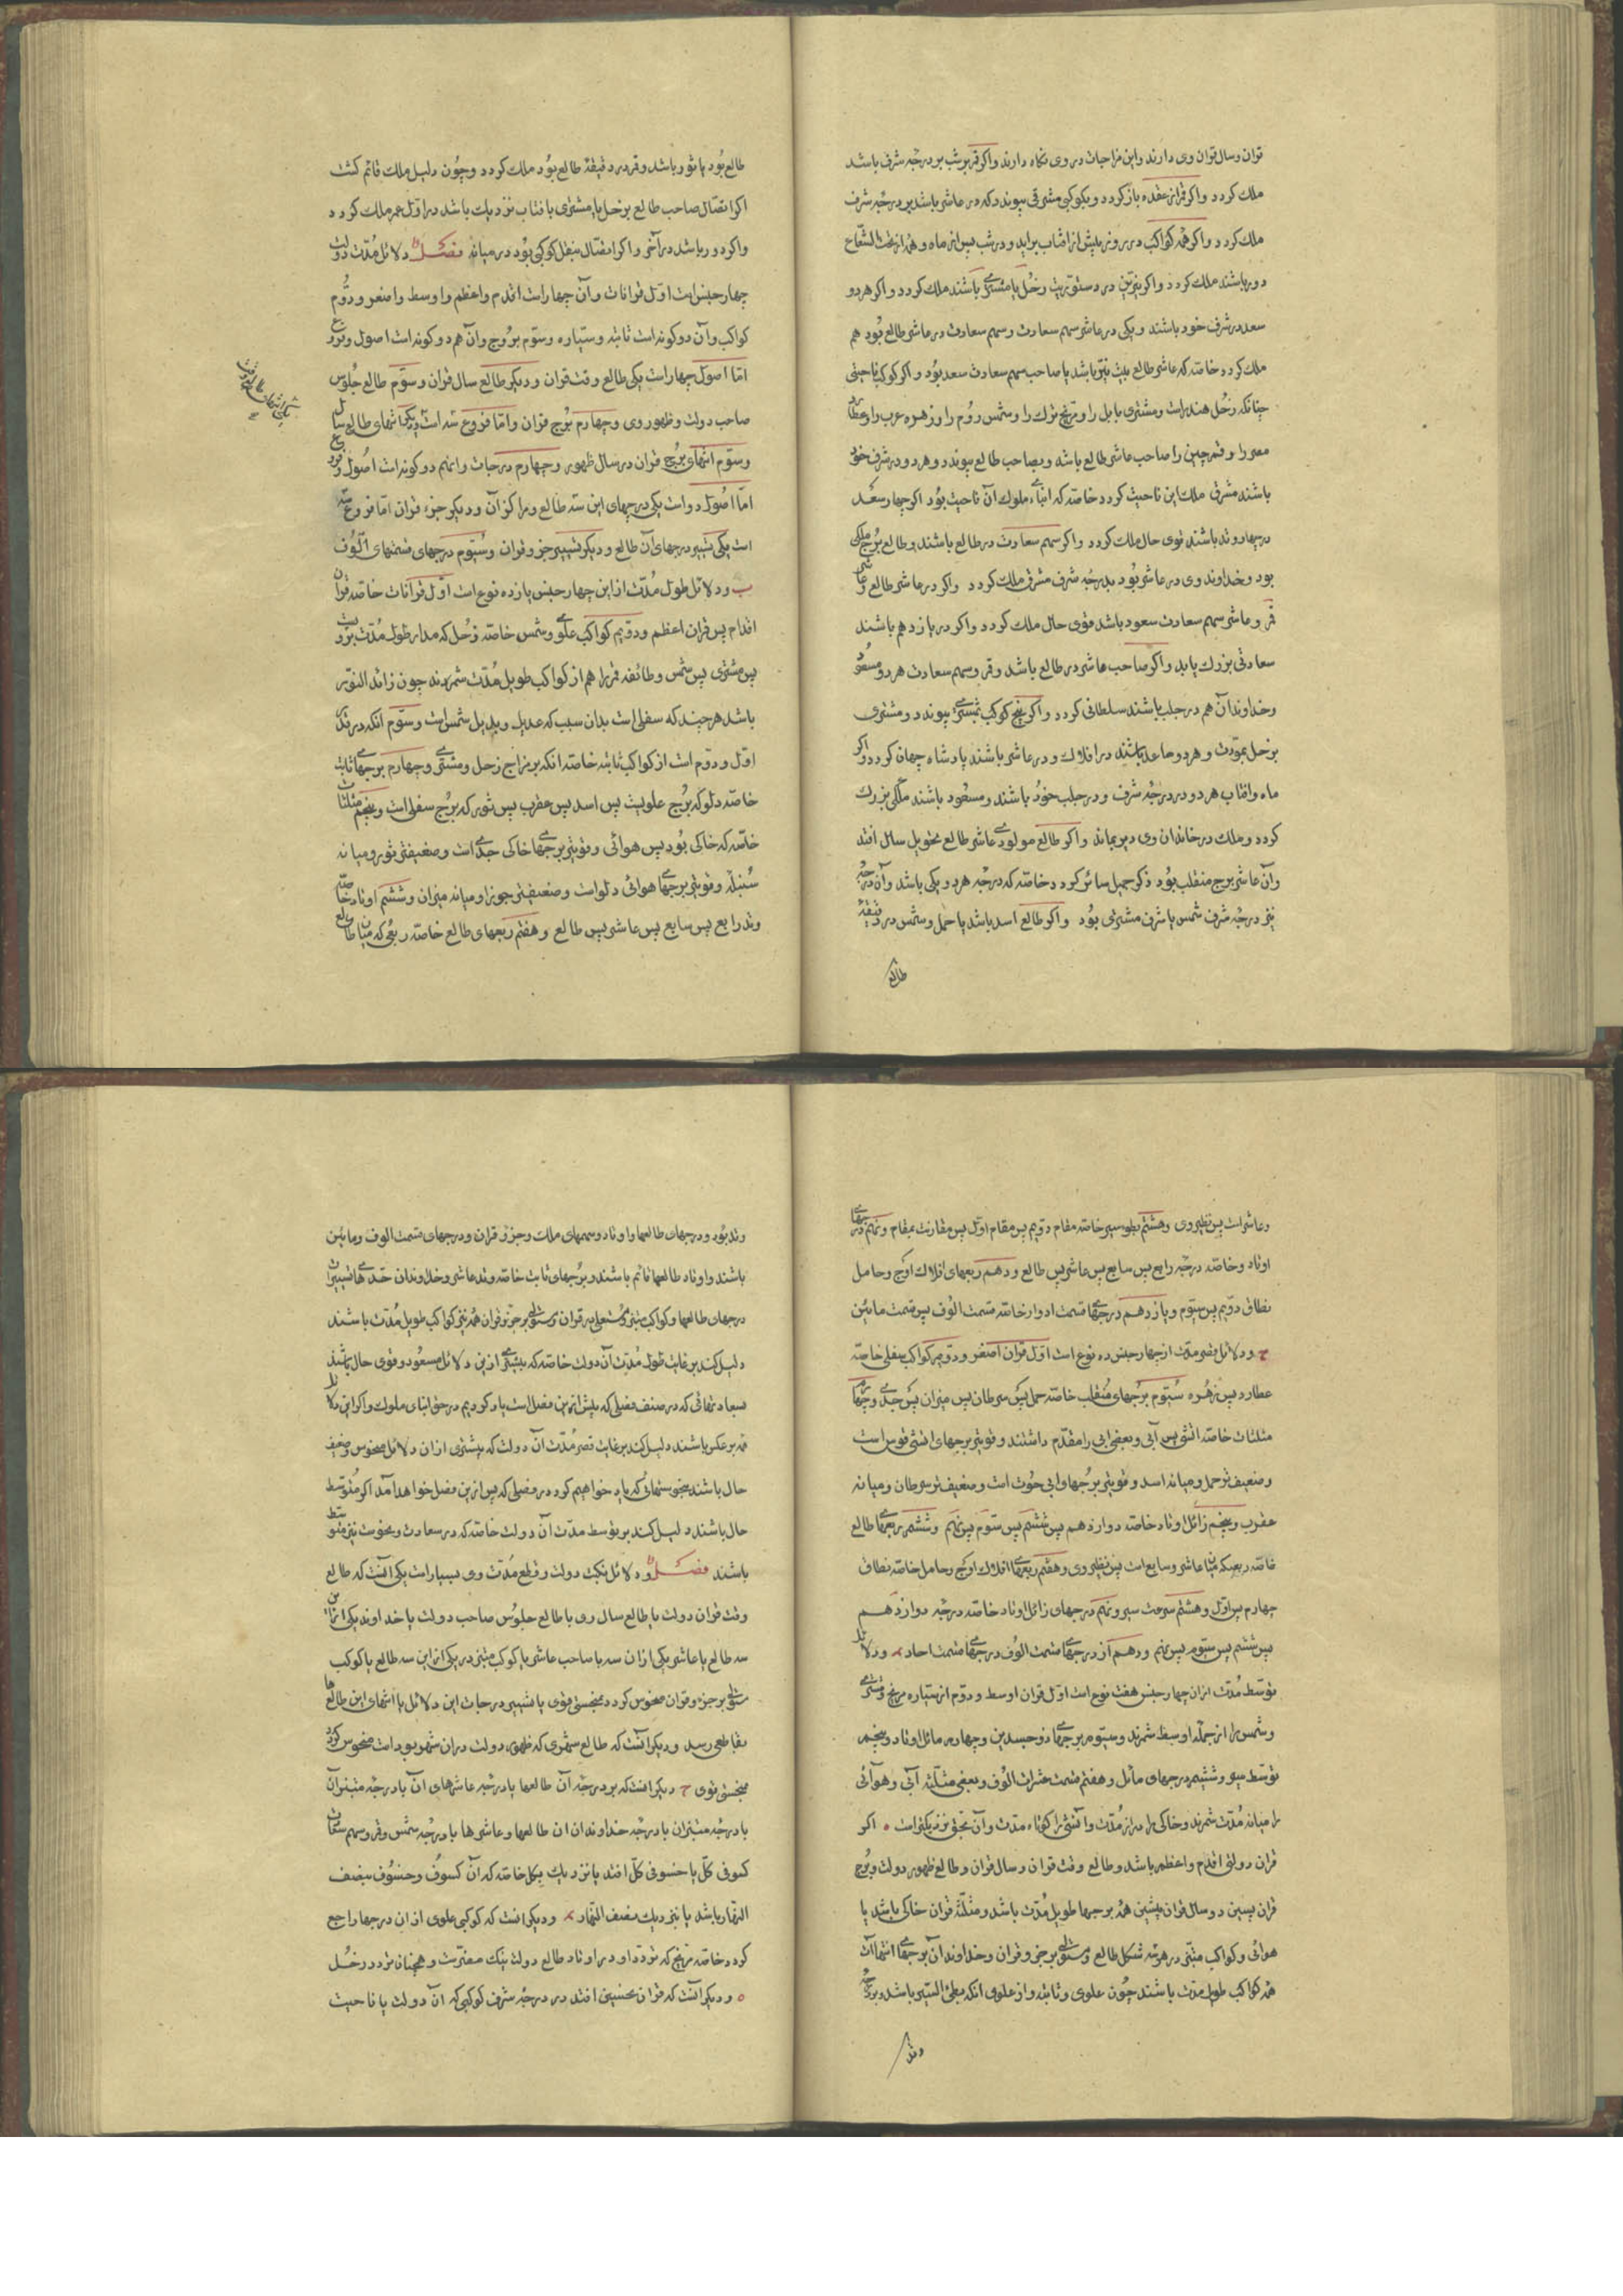 قران وسال قران وی دارند واین مزاجات در وی نکاه دارند واکر قمر بشب بر درجهٔ شرف باشد
ملک کردد واکر قمر از عقده بازکردد وبکوکبی مشرقی پیوندد که در عاشر باشد بر درجهٔ شرف
ملک کردد واکر همه کواکب در روز پیش از افتاب براید ودر شب پس از ماه وهمه از تحت الشعاع
دور باشند ملک کردد واکر نیرین در دستوریت زحل یا مشتری باشند ملک کردد واکر هر دو
سعد در شرف خود باشند ویکی در عاشر سهم سعادت وسهم سعادت در عاشر طالع بود هم
ملک کردد خاصه که عاشر طالع بیت نیر باشد یا صاحب سهم سعادت سعد بود واکر کوکب ناحیتی
چنانکه زحل هند راست ومشتری بابل را ومریخ ترک را وشمس روم را وزهره عرب را وعطارد
مصر را وقمر چین را صاحب عاشر طالع باشد وبصاحب طالع پیوندد وهر دو در شرف خود
باشند مشرق ملک این ناحیت کردد خاصه که ابناء ملوک آن ناحیت بود اکر چهار سعد
در چهار وتد باشند قوی حال ملک کردد واکر سهم سعادت در طالع باشند وطالع برج ملکی
بود وخداوند وی در عاشر بود بدرجه شرف مشرق ملک کردد واکر در عاشر طالع عاشر
قمر وعاشر سهم سعادت سعود باشد قوی حال ملک کردد واکر در یازدهم باشند
سعادتی بزرک یابد واکر صاحب عاشر در طالع باشد وقمر وسهم سعادت هر دو مسعود
وخداوند آن هم در جلب باشند سلطانی کردد واکر پنج کوکب بمشتری پیوندد ومشتری
بزحل بمودت وهر دو صاعد باشند در افلاک ودر عاشر باشند پادشاه جهان کردد واکر
ماه وافتاب هر دو در درجهٔ شرف ودر جلب خود باشند ومسعود باشند ملکی بزرک
کردد وملک در خاندان وی دیر بماند واکر طالع مولودی عاشر طالع تحویل سال افتد
وآن عاشر برج منقلب بود ذکر جمیل سائر کردد خاصه که درجه هر دو یکی باشد وآن درجه
نیز درجهٔ شرف شمس یا شرف مشتری بود واکر طالع اسد باشد یا حمل وشمس در دقیقهٔ
طالع
طالع بود یا ثور باشد وقمر در دقیقهٔ طالع بود ملک کردد وچون دلیل ملک قائم کشت
اکر اتصال صاحب طالع بزحل یا مشتری یا افتاب نزدیک باشد در اول عمر ملک کردد
واکر دور باشد در آخر واکر اتصال بسفلی کوکبی بود در میانه فصل دلائل مدت دولت
چهار جنس است اول قرانات وآن چهار است اقدم واعظم واوسط واصغر ودوم
کواکب وآن دو کونه است ثابته وسیاره وسوم بروج وآن هم دو کونه است اصول وفروع
اما اصول چهار است یکی طالع وقت قران ودیکر طالع سال قران وسوم طالع جلوس
صاحب دولت وظهور وی وچهارم برج قران واما فروع سه است یکی انتهای طالع سال
وسوم انتهای برج قران در سال ظهور وچهارم درجات واینهم دو کونه است اصول وفروع
اما اصول دو است یکی درجهای این سه طالع ومراکز آن ودیکر جزء قران اما فروع سه
است یکی تسییر درجهای آن طالع ودیکر تسییر جزو قران وسوم درجهای قسمتهای الوف
ب ودلائل طول مدت از این چهار جنس یازده نوع است اول قرانات خاصه قران
اقدم پس قران اعظم ودویم کواکب علوی وشمس خاصه زحل که مدار طول مدت بر ویست
پس مشتری پس شمس وطائفه قمر را هم از کواکب طویل مدت شمردند چون زائد النور
باشد هر چند که سفلی است بدان سبب که عدیل وبدیل شمس است وسوم آنکه در قدر
اول ودوم است از کواکب ثابته خاصه انکه بر مزاج زحل ومشتری وچهارم برجهای ثابت
خاصه دلو که برج علویست پس اسد پس عقرب پس ثور که برج سفلی است وپنجم مثلثات
خاصه که خاکی بود پس هوائی وقویتر برجهای خاکی جدی است وضعیفتر ثور ومیانه
سنبله وقویتر برجهای هوائی دلو است وضعیفتر جوزا ومیانه میزان وششم اوتاد خاصه
وتد رابع پس سابع پس عاشر پس طالع وهفتم ربعهای طالع خاصه ربعی که میان طالع
وعاشر است پس نظیر وی وهشتم بطوء سیر خاصه مقام دویم پس مقام اول پس مقارنت بمقام ونهم درجهای
اوتاد وخاصه درجه رابع پس سابع پس عاشر پس طالع ودهم ربعهای افلاک اوج وحامل
نطاق دویم پس سوم ویازدهم درجهای قسمت ادوار خاصه قسمت الوف پس قسمت مابین
ج ودلائل قصر مدت از چهار جنس ده نوع است اول قران اصغر ودویم کواکب سفلی خاصه
عطارد پس زهره سیوم برجهای منقلب خاصه حمل پس سرطان پس میزان پس جدی وچهارم
مثلثات خاصه اتشی پس آبی وبعضی ابی را مقدم داشتند وقویتر برجهای اتشی قوس است
وضعیفتر حمل ومیانه اسد وقویتر برجهای ابی حوت است وضعیفتر سرطان ومیانه
عقرب وپنجم زائل اوتاد خاصه دوازدهم پس ششم پس سوم پس نهم وششم ربعهای طالع
خاصه ربعیکه میان عاشر وسابع است پس نظیر وی وهفتم ربعهای افلاک اوج وحامل خاصه نطاق
چهارم پس اول وهشتم سرعت سیر ونهم درجهای زائل اوتاد خاصه درجه دوازدهم
پس ششم پس سوم پس نهم ودهم از درجهای قسمت الوف درجهای قسمت احاد د ودلائل
توسط مدت از ان چهار جنس هفت نوع است اول قران اوسط ودوم از سیاره مریخ ومشتری
وشمس را از جمله اوسط شمرند وسیوم برجهای ذو جسدین وچهارم مائل اوتاد وپنجم
توسط سیر وششم درجهای مائل وهفتم قسمت عشرات الوف وبعضی مثلثه آبی وهوائی
را میانه مدت شمرند وخاکی را دراز مدت واتشی را کوتاه مدت وآن بحق نزدیکتر است ه اکر
قران دولتی اقدم واعظم باشد وطالع وقت قران وسال قران وطالع ظهور دولت وبرج
قران پسین وسال قران پیشین همه برجها طویل مدت باشد ومثلثهٔ قران خاکی باشد یا
هوائی وکواکب مبتز در هر سه شکل طالع ومستولی بر جزو قران وخداوند آن برجهای انتهاآت
همه کواکب طویل مدت باشند چون علوی وثابته واز علوی انکه بطئ السیر باشد وبر درجه
وتد
وتد بود ودرجهای طالعها واوتاد وسهمهای ملک وجزو قران ودرجهای قسمت الوف وماتین
باشند واوتاد طالعها قائم باشند وبرجهای ثابت خاصه وتد عاشر وخداوندان حدهای تسییرات
درجهای طالعها وکواکب مبتز ومستعلی در قران ومستولی بر جزو قران همه نیز کواکب طویل مدت باشند
دلیل کند بر غایت طول مدت آن دولت خاصه که بیشتری ازین دلائل مسعود وقوی حال باشند
بسعادتهائی که در صنف فصلی که پیش ازین فصل است یاد کردیم در حق ابنای ملوک واکر این دلائل
همه بر عکس باشند دلیل کند بر غایت قصر مدت آن دولت که بیشتری از ان دلائل منحوس وضعیف
حال باشند بنحوستهائی که یاد خواهیم کرد در فصلی که پس ازین فصل خواهد آمد اکر متوسط
حال باشند دلیل کند بر توسط مدت آن دولت خاصه که در سعادت ونحوست نیز متوسط
باشند فصل ودلائل نکبت دولت وقطع مدت وی بسیار است یکی آنست که طالع
وقت قران دولت یا طالع سال وی یا طالع جلوس صاحب دولت یا خداوند یکی از این
سه طالع یا عاشر یکی از ان سه یا صاحب عاشر یا کوکب مبتز در یکی از این سه طالع یا کوکب
مستولی بر جزء قران منحوس کردد بنحسی قوی یا تسییر درجات این دلائل یا انتهای این طالعها
بقاطعی رسد ودیکر آنست که طالع شهری که ظهور دولت دران شهر بوده است منحوس کردد
بنحسی قوی ج دیکر انست که بر درجه آن طالعها یا درجه عاشرهای آن یا درجه مبتزان
یا درجه مبتزان یا درجه خداوندان ان طالعها وعاشرها یا درجه شمس وقمر وسهم سعادت
کسوفی کلی یا خسوفی کلی افتد یا نزدیک بکل خاصه که آن کسوف وخسوف بنصف
النهار باشد یا نزدیک بنصف النهار د ودیکر انست که کوکبی علوی از ان درجها راجع
کردد خاصه مریخ که تردد او در اوتاد طالع دولت نیک مضرتست وهمچنان تردد زحل
ه ودیکر آنست که قران نحسین افتد در درجهٔ شرف کوکبی که ان دولت یا ناحیت